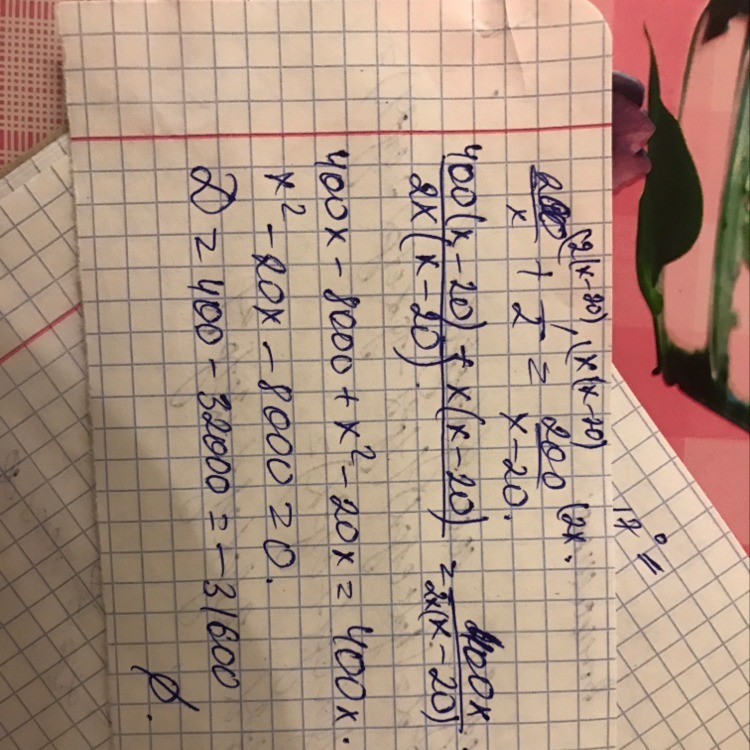 200 (2(x-20) / x + 1 (x(x-20) / 2 = 200 (2x. / x-20.
400(x-20) + x(x-20) / 2x(x-20). = 400x / 2x(x-20).
400x - 8000 + x² - 20x = 400x.
x² - 20x - 8000 = 0.
D = 400 - 32000 = -31600
∅.